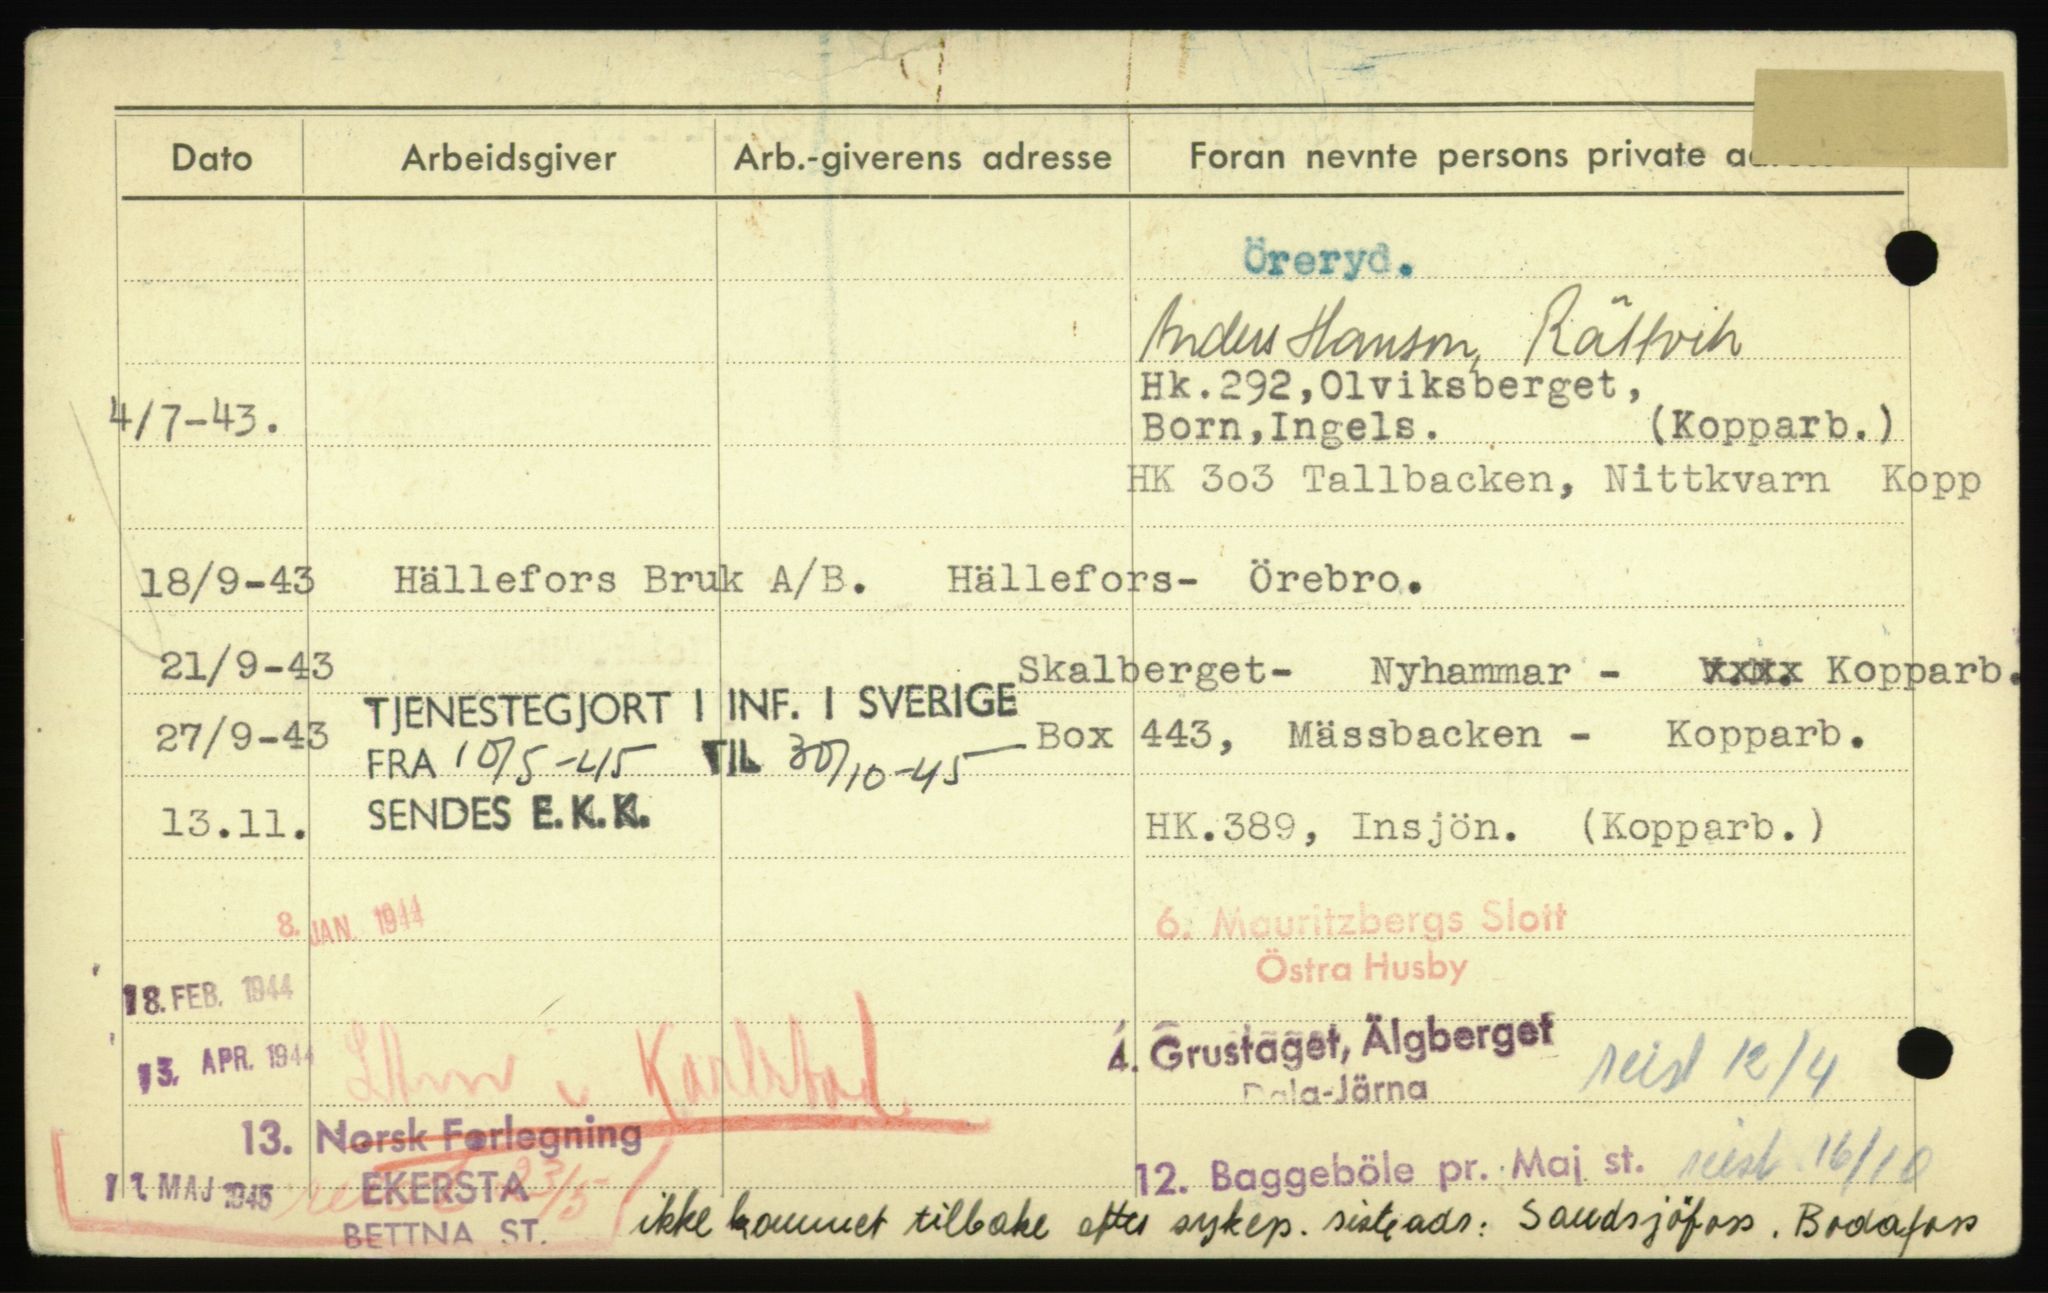 Dato Arbeidsgiver Arb.-giverens adresse Foran nevnte persons private
Öreryd.
Anders Hanson, Rättvik
Hk.292,Olviksberget,
4/7-43. Born,Ingels. (Kopparb.)
HK 3o3 Tallbacken, Nittkvarn Kopp
18/9-43 Hällefors Bruk A/B. Hällefors- Örebro.
21/9-43 Skalberget- Nyhammar - Kopparb.
TJENESTEGJORT I INF. I SVERIGE
27/9-43 Box 443, Mässbacken - Kopparb.
FRA 10/5-45 TIL 30/10-45
SENDES E.K.K.
13.11. HK.389, Insjön. (Kopparb.)
8. JAN. 1944 6. Mauritzbergs Slott
Östra Husby
18. FEB. 1944
13. APR. 1944 i Karlstad 4. Grustaget, Älgberget
Dala-Järna reist 12/4
13. Norsk Forlegning
12. Baggeböle pr. Maj st. reist 16/10
11. MAJ 1945 EKERSTA 23/5
BETTNA ST.
ikke kommet tilbake efter sykep. siste adr: Sandsjöfoss. Bodafoss